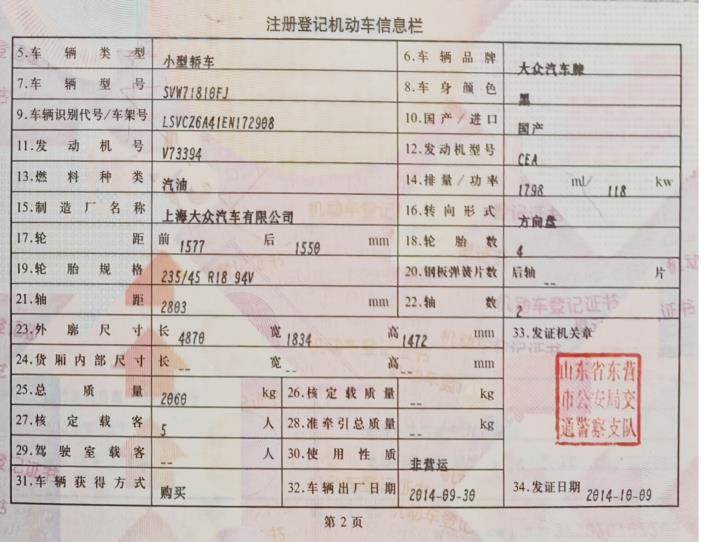 注册登记机动车信息栏
5.车辆类型 小型轿车 6.车辆品牌 大众汽车牌
7.车辆型号 SVW71810FJ 8.车身颜色 黑
9.车辆识别代号/车架号 LSVCZ6A41EN172908 10.国产/进口 国产
11.发动机号 V73394 12.发动机型号 CEA
13.燃料种类 汽油 14.排量/功率 1798 ml/ 118 kw
15.制造厂名称 上海大众汽车有限公司 16.转向形式 方向盘
17.轮距 前 1577 后 1550 mm 18.轮胎数 4
19.轮胎规格 235/45 R18 94V 20.钢板弹簧片数 后轴 -- 片
21.轴距 2803 mm 22.轴数 2
23.外廓尺寸 长 4870 宽 1834 高 1472 mm 33.发证机关章
24.货厢内部尺寸 长 -- 宽 -- 高 -- mm
山东省东营
市公安局交
通警察支队
25.总质量 2060 kg 26.核定载质量 -- kg
27.核定载客 5 人 28.准牵引总质量 -- kg
29.驾驶室载客 -- 人 30.使用性质 非营运
31.车辆获得方式 购买 32.车辆出厂日期 2014-09-30 34.发证日期 2014-10-09
第2页